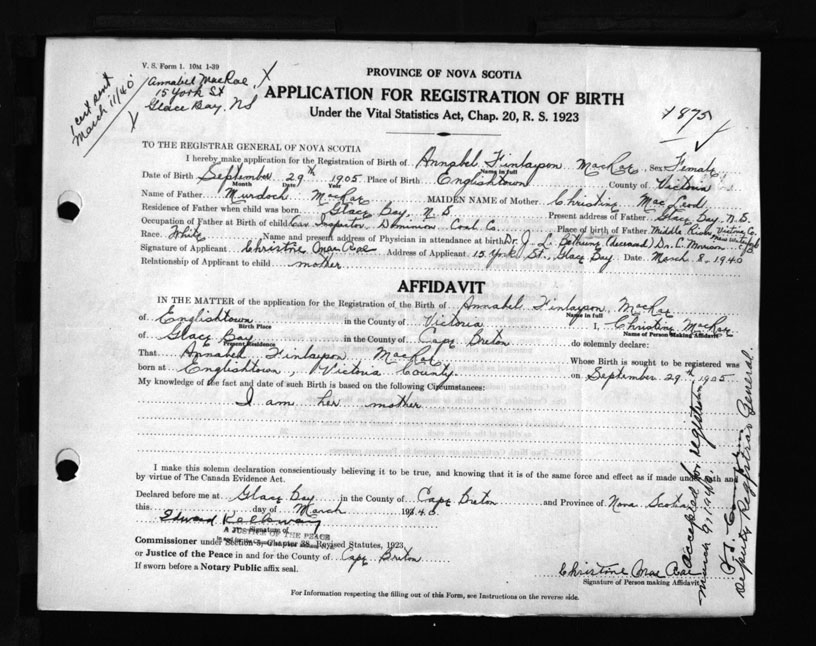 V. S. Form 1. 10M 1-39
Annabel MacRae,
15 York St
Glace Bay, NS
cert sent
March 11/40
PROVINCE OF NOVA SCOTIA
APPLICATION FOR REGISTRATION OF BIRTH
Under the Vital Statistics Act, Chap. 20, R. S. 1923
1875
TO THE REGISTRAR GENERAL OF NOVA SCOTIA
I hereby make application for the Registration of Birth of Annabel Finlayson MacRae Sex Female
Name in full
Date of Birth September 29th 1905 Place of Birth Englishtown County of Victoria
Month Date Year
Name of Father Murdoch MacRae MAIDEN NAME of Mother Christine MacLeod
Residence of Father when child was born Glace Bay, N.S. Present address of Father Glace Bay. N.S.
Occupation of Father at Birth of child Car Inspitor Dominion Coal C. Place of birth of Father Middle River Victoria Co.
Race White Name and present address of Physician in attendance at birth Dr. J. L. Bethune (deceased) Dr. C. Morrison
Signature of Applicant Christine MacRae Address of Applicant 15 York St., Glace Bay Date March 8. 1940
Relationship of Applicant to child mother
AFFIDAVIT
IN THE MATTER of the application for the Registration of the Birth of Annabel Finlayson MacRae
Name in full
of Englishtown in the County of Victoria I, Christine MacRae
Birth Place
Name of Person Making Affidavit
of Glace Bay in the County of Cape Breton do solemnly declare:
Present Residence
That Annabel Finlayson MacRae Whose Birth is sought to be registered was
born at Englishtown, Victoria County on September 29th 1905
My knowledge of the fact and date of such Birth is based on the following Circumstances:
I am her mother
I make this solemn declaration conscientiously believing it to be true, and knowing that it is of the same force and effect as if made under oath and
by virtue of The Canada Evidence Act.
Declared before me at Glace Bay in the County of Cape Breton and Province of Nova Scotia
this day of March 1940
Edward
Signature of
A JUSTICE OF THE PEACE
Commissioner under Section 3, Chapter 38, Revised Statutes, 1923
or Justice of the Peace in and for the County of Cape Breton
If sworn before a Notary Public affix seal.
Christine MacRae
Signature of Person making Affidavit
For Information respecting the filling out of this Form, see Instructions on the reverse side.
Accepted for registration
March 9, 1940.
Deputy Registrar General.